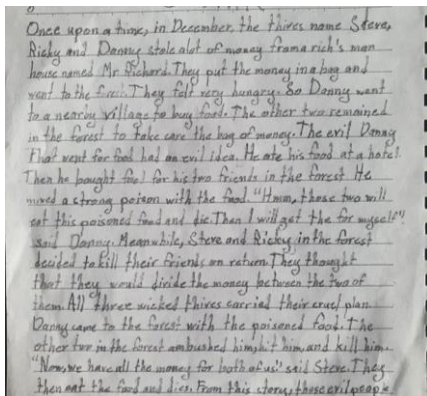 Once upon a time, in December, the thires name Steve,
Ricky and Danny stole alot of money from a rich's man
house named Mr. Richard. They put the money in a bag and
went to the They felt very hungry. So Danny went
to a nearby village to buy food. The other two remained
in the forest to take care the bag of money. The evil Danny
that went for food had an evil idea. He ate his food at a hotel.
Then he bought for his two friends in the forest He
mixed a strong poison with the food. "Hmm, those two will
eat this poisoned food and die. Then I will get the for myself".
said Danny. Meanwhile, Steve and Ricky, in the forest
decided to kill their friends on return. They thought
that they would divide the money between the two of
them. All three wicked thires carried their cruel plan.
Danny came to the forest with the poisoned food. The
other two in the forest ambushed him, hit him, and kill him.
"Now, we have all the money for both of us". said Steve. They
then eat the food and dies. From this story, those evil people